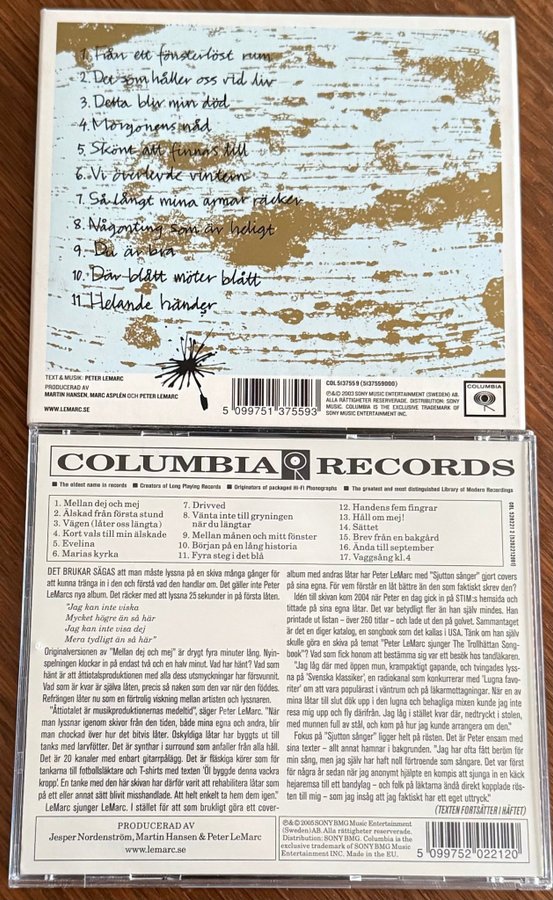 1. Från ett fönsterlöst rum
2. Det som håller oss vid liv
3. Detta blir min död
4. Morgonens nåd
5. Skönt att finnas till
6. Vi överlevde vintern
7. Så långt mina armar räcker
8. Någonting som är heligt
9. Du är bra
10. Där blått möter blått
11. Helande händer
TEXT & MUSIK: PETER LEMARC
PRODUCERAD AV
MARTIN HANSEN, MARC ASPLÉN OCH PETER LEMARC
WWW.LEMARC.SE
5 099751 375593
COL 513755 9 (5137559000)
℗&© 2003 SONY MUSIC ENTERTAINMENT (SWEDEN) AB.
ALLA RÄTTIGHETER RESERVERADE. DISTRIBUTION: SONY
MUSIC. COLUMBIA IS THE EXCLUSIVE TRADEMARK OF
SONY MUSIC ENTERTAINMENT INC.
COLUMBIA
COLUMBIA RECORDS
■ The oldest name in records ■ Creators of Long Playing Records ■ Originators of packaged Hi-Fi Phonographs ■ The greatest and most distinguished Library of Modern Recordings
1. Mellan dej och mej
2. Älskad från första stund
3. Vägen (låter oss längta)
4. Kort vals till min älskade
5. Evelina
6. Marias kyrka
7. Drivved
8. Vänta inte till gryningen
når du längtar
9. Mellan månen och mitt fönster
10. Början på en lång historia
11. Fyra steg i det blå
12. Handens fem fingrar
13. Håll om mej!
14. Sättet
15. Brev från en bakgård
16. Ända till september
17. Vaggsång kl.4
DET BRUKAR SÄGAS att man måste lyssna på en skiva många gånger för
att kunna tränga in i den och förstå vad den handlar om. Det gäller inte Peter
LeMarcs nya album. Det räcker med att lyssna 25 sekunder in på första låten.
"Jag kan inte viska
Mycket högre än så här
Jag kan inte visa dej
Mera tydligt än så här"
Originalversionen av "Mellan dej och mej" är drygt fyra minuter lång. Nyin-
spelningen klockar in på endast två och en halv minut. Vad har hänt? Vad som
hänt är att åttiotalsproduktionen med alla dess utsmyckningar har försvunnit.
Vad som är kvar är själva låten, precis så naken som den var när den föddes.
Refrängen låter nu som en förtrolig viskning mellan artisten och lyssnaren.
"Åttiotalet är musikproduktionernas medeltid", säger Peter LeMarc. "När
man lyssnar igenom skivor från den tiden, både mina egna och andra, blir
man chockad över hur det bitvis låter. Oskyldiga låtar har byggts ut till
tanks med larvfötter. Det är synthar i surround som anfaller från alla håll.
Det är 20 kanaler med enbart gitarrpålägg. Det är fläskiga körer som för
tankarna till fotbollsläktare och T-shirts med texten 'Öl byggde denna vackra
kropp'. En tanke med den här skivan har därför varit att rehabilitera låtar som
på ett eller annat sätt blivit misshandlade. Att helt enkelt ta hem dem igen."
LeMarc sjunger LeMarc. I stället för att som brukligt göra ett cover-
album med andras låtar har Peter LeMarc med "Sjutton sånger" gjort covers
på sina egna. För vem förstår en låt bättre än den som faktiskt skrev den?
Idén till skivan kom 2004 när Peter en dag gick in på STIM:s hemsida och
tittade på sina egna låtar. Det var betydligt fler än han själv mindes. Han
printade ut listan – över 260 titlar – och lade ut den på golvet. Sammantaget
är det en diger katalog, en songbook som det kallas i USA. Tänk om han själv
skulle göra en skiva på temat "Peter LeMarc sjunger The Trollhättan Song-
book"? Vad som fick honom att bestämma sig var ett besök hos tandläkaren.
"Jag låg där med öppen mun, krampaktigt gapande, och tvingades lyss-
na på 'Svenska klassiker', en radiokanal som konkurrerar med 'Lugna favo-
riter' om att vara populärast i väntrum och på läkarmottagningar. När en av
mina låtar till slut dök upp i den lugna och behagliga mixen kunde jag inte
resa mig upp och fly därifrån. Jag låg i stället kvar där, nedtryckt i stolen,
med munnen full av stål, och kom på hur jag kunde arrangera om den."
Fokus på "Sjutton sånger" ligger helt på rösten. Det är Peter ensam med
sina texter – allt annat hamnar i bakgrunden. "Jag har ofta fått beröm för
min sång, men jag själv har haft noll förtroende som sångare. Det var först
för några år sedan när jag anonymt hjälpte en kompis att sjunga in en käck
hejaramsa till ett bandylag – och folk på läktarna ändå direkt kopplade rös-
ten till mig – som jag insåg att jag faktiskt har ett eget uttryck."
(TEXTEN FORTSÄTTER I HÄFTET)
PRODUCERAD AV
Jesper Nordenström, Martin Hansen & Peter LeMarc
www.lemarc.se
℗&© 2005 SONY BMG Music Entertainment
(Sweden) AB. Alla rättigheter reserverade.
Distribution: SONY BMG. Columbia is the
exclusive trademark of SONY BMG Music
Entertainment INC. Made in the EU.
5 099752 022120